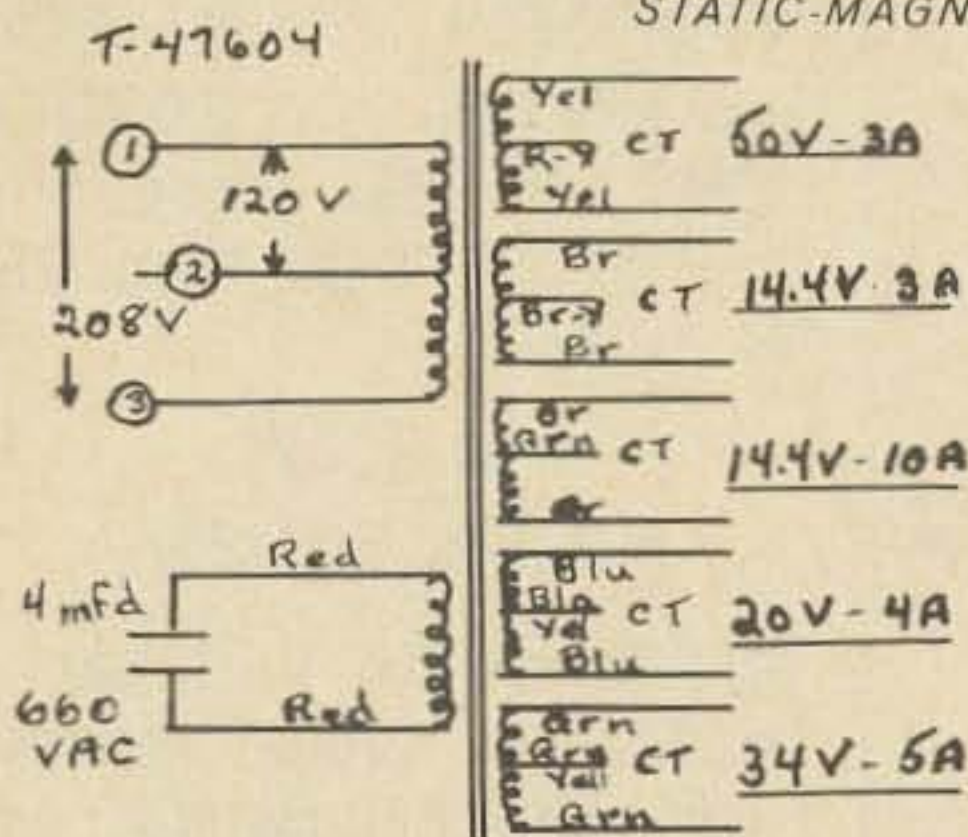 STATIC-MAGN
T-47604
1
120 V
2
208V
3
4 mfd
660
VAC
Red
Red
Yel
R-Y CT 50V-3A
Yel
Br
Br-Y CT 14.4V 3A
Br
Or
Grn CT 14.4V-10A
Blu
Blu CT 20V-4A
Yel
Blu
Grn
Grn CT 34V-5A
Yell
Grn